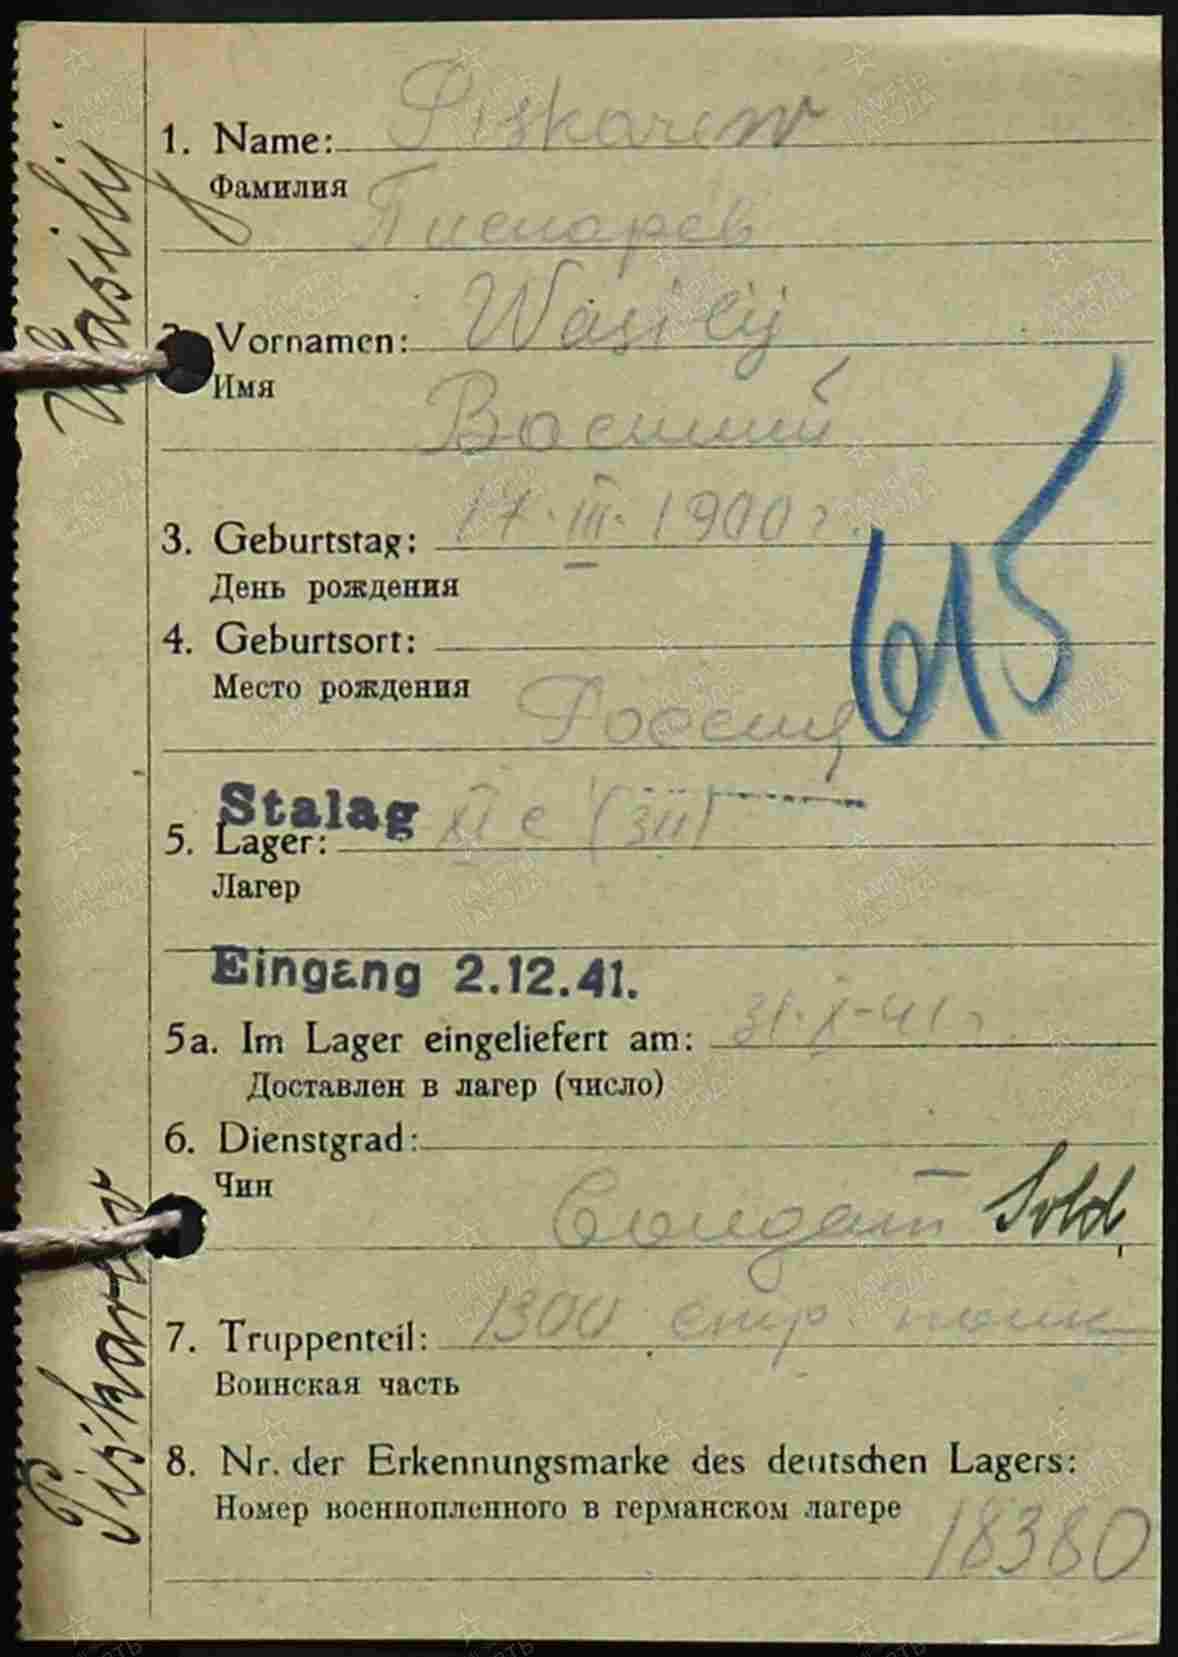 1. Name: Piskarew
Фамилия
Пискарёв
2. Vornamen: Wasilij
Имя
Василий
3. Geburtstag: 17·III·1900 г.
День рождения
4. Geburtsort:
Место рождения
Россия
615
Stalag
5. Lager: XI C (311)
Лагер
Eingang 2.12.41.
5a. Im Lager eingeliefert am: 31·X-41 г.
Доставлен в лагер (число)
6. Dienstgrad:
Чин
Солдат Sold.
7. Truppenteil: 1300 стр. полк
Воинская часть
8. Nr. der Erkennungsmarke des deutschen Lagers:
Номер военнопленного в германском лагере
18380
Piskarew Wasilij
ПАМЯТЬ НАРОДА